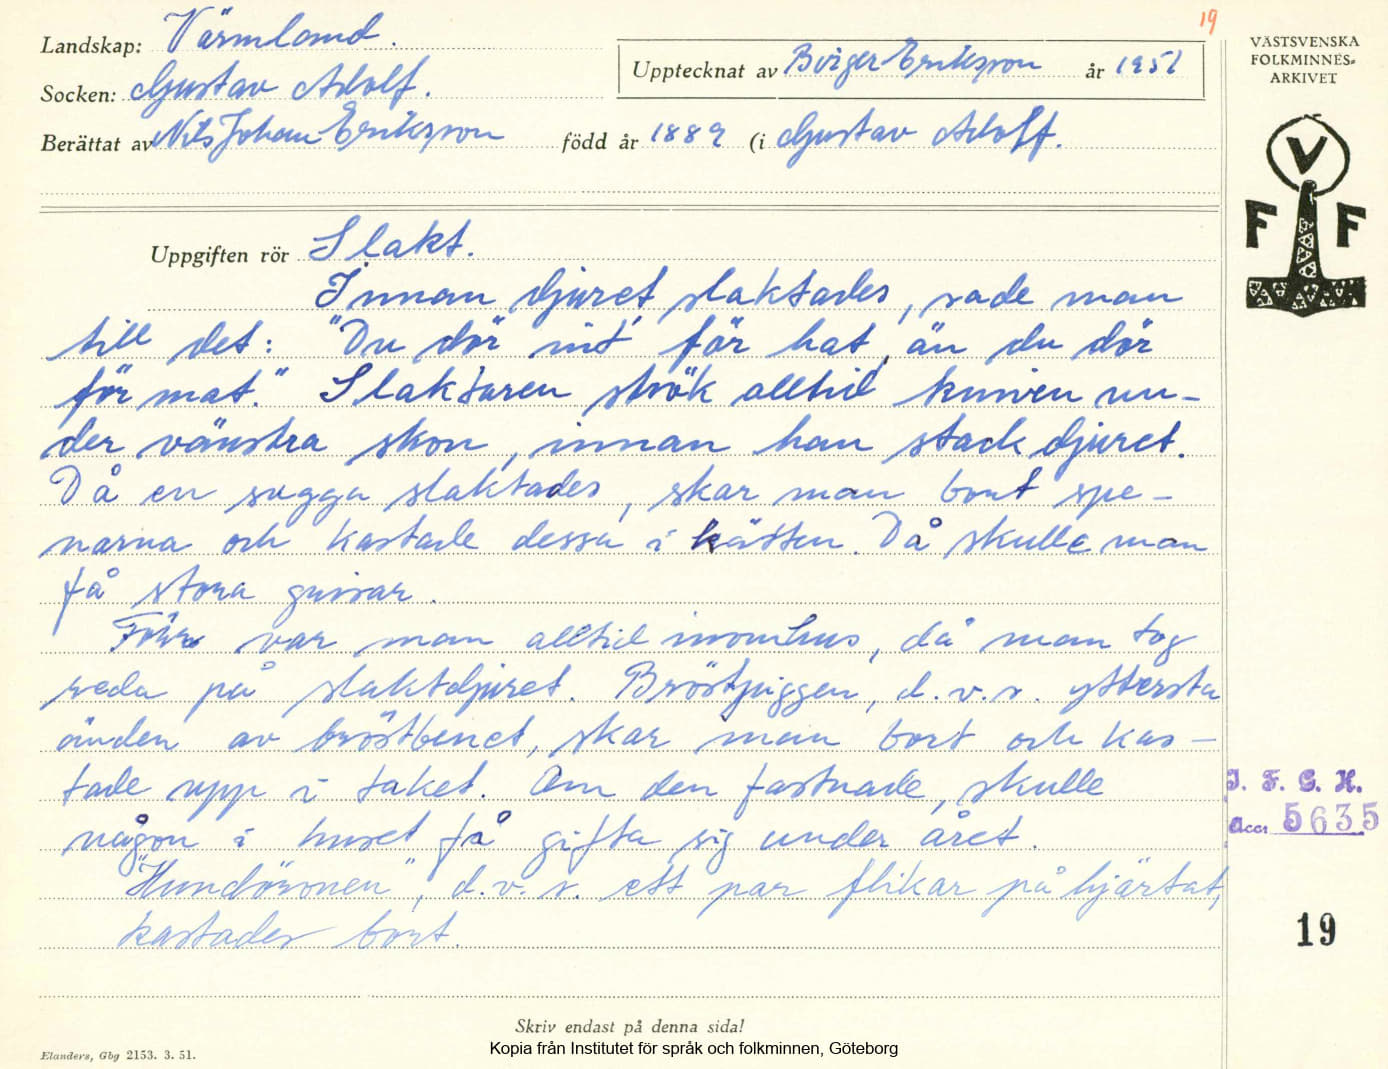 19
Landskap: Värmland.
Socken: Gustav Adolf.
Upptecknat av Birger Eriksson år 1951
Berättat av Nils Johan Eriksson född år 1889 (i Gustav Adolf.
VÄSTSVENSKA
FOLKMINNES-
ARKIVET
V
F F
Uppgiften rör Slakt.
Innan djuret slaktades, sade man
till det: "Du dör int' för hat, än du dör
för mat." Slaktaren strök alltid kniven un-
der vänstra skon, innan han stack djuret.
Då en sugga slaktades, skar man bort spe-
narna och kastade dessa i kätten. Då skulle man
få stora grisar.
Förr var man alltid inomhus, då man tog
reda på slaktdjuret. Bröstjuggen, d.v.s. yttersta
änden av bröstbenet, skar man bort och kas-
tade upp i taket. Om den fastnade, skulle
någon i huset få gifta sig under året.
"Hundöronen", d.v.s. ett par flikar på hjärtat,
kastades bort.
I. F. G. H.
Acc: 5635
19
Skriv endast på denna sida!
Elanders, Gbg 2153. 3. 51.
Kopia från Institutet för språk och folkminnen, Göteborg